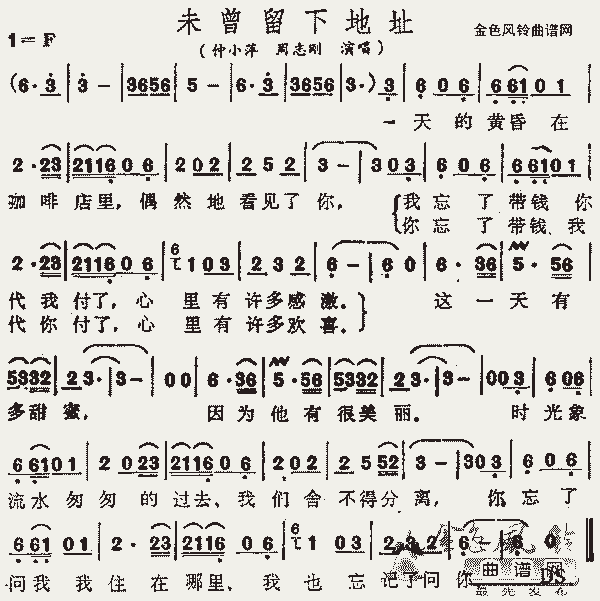 未曾留下地址
1=F
(仲小萍 周志刚 演唱)
金色风铃曲谱网
(6·3 | 3 - | 3656 3656 | 5 - | 6·3 | 3656 3656 | 3·) 3 | 6 06 | 6 61 01 |
一 天 的 黄昏 在
2·23 | 2116 06 | 202 | 252 | 3 - | 303 | 6 06 | 6 61 01 |
咖 啡 店里, 偶 然 地 看见了 你, 我 忘 了 带钱 你
你 忘 了 带钱、我
2·23 | 2116 06 | 6 1 03 | 232 | 6 - | 6 0 | 6·36 | 5·56 |
代 我 付了, 心 里 有 许多感 激。 这 一 天 有
代 你 付了, 心 里 有 许多欢 喜。
5332 | 23· | 3 - | 00 | 6·36 | 5·56 | 5332 | 23· | 3 - | 003 | 6 06 |
多甜 蜜, 因 为 他 有 很美 丽。 时 光象
6 61 01 | 2 023 | 2116 06 | 202 | 2 522 | 3 - | 303 | 6 06 |
流水 匆 匆 的 过去, 我 们 舍 不得分 离, 你 忘 了
6 61 01 | 2·23 | 2116 06 | 6 1 03 | 232 | 6 - | 6 0 |
问我 我 住 在 哪里, 我 也 忘 记了问 你
曲谱网
DS